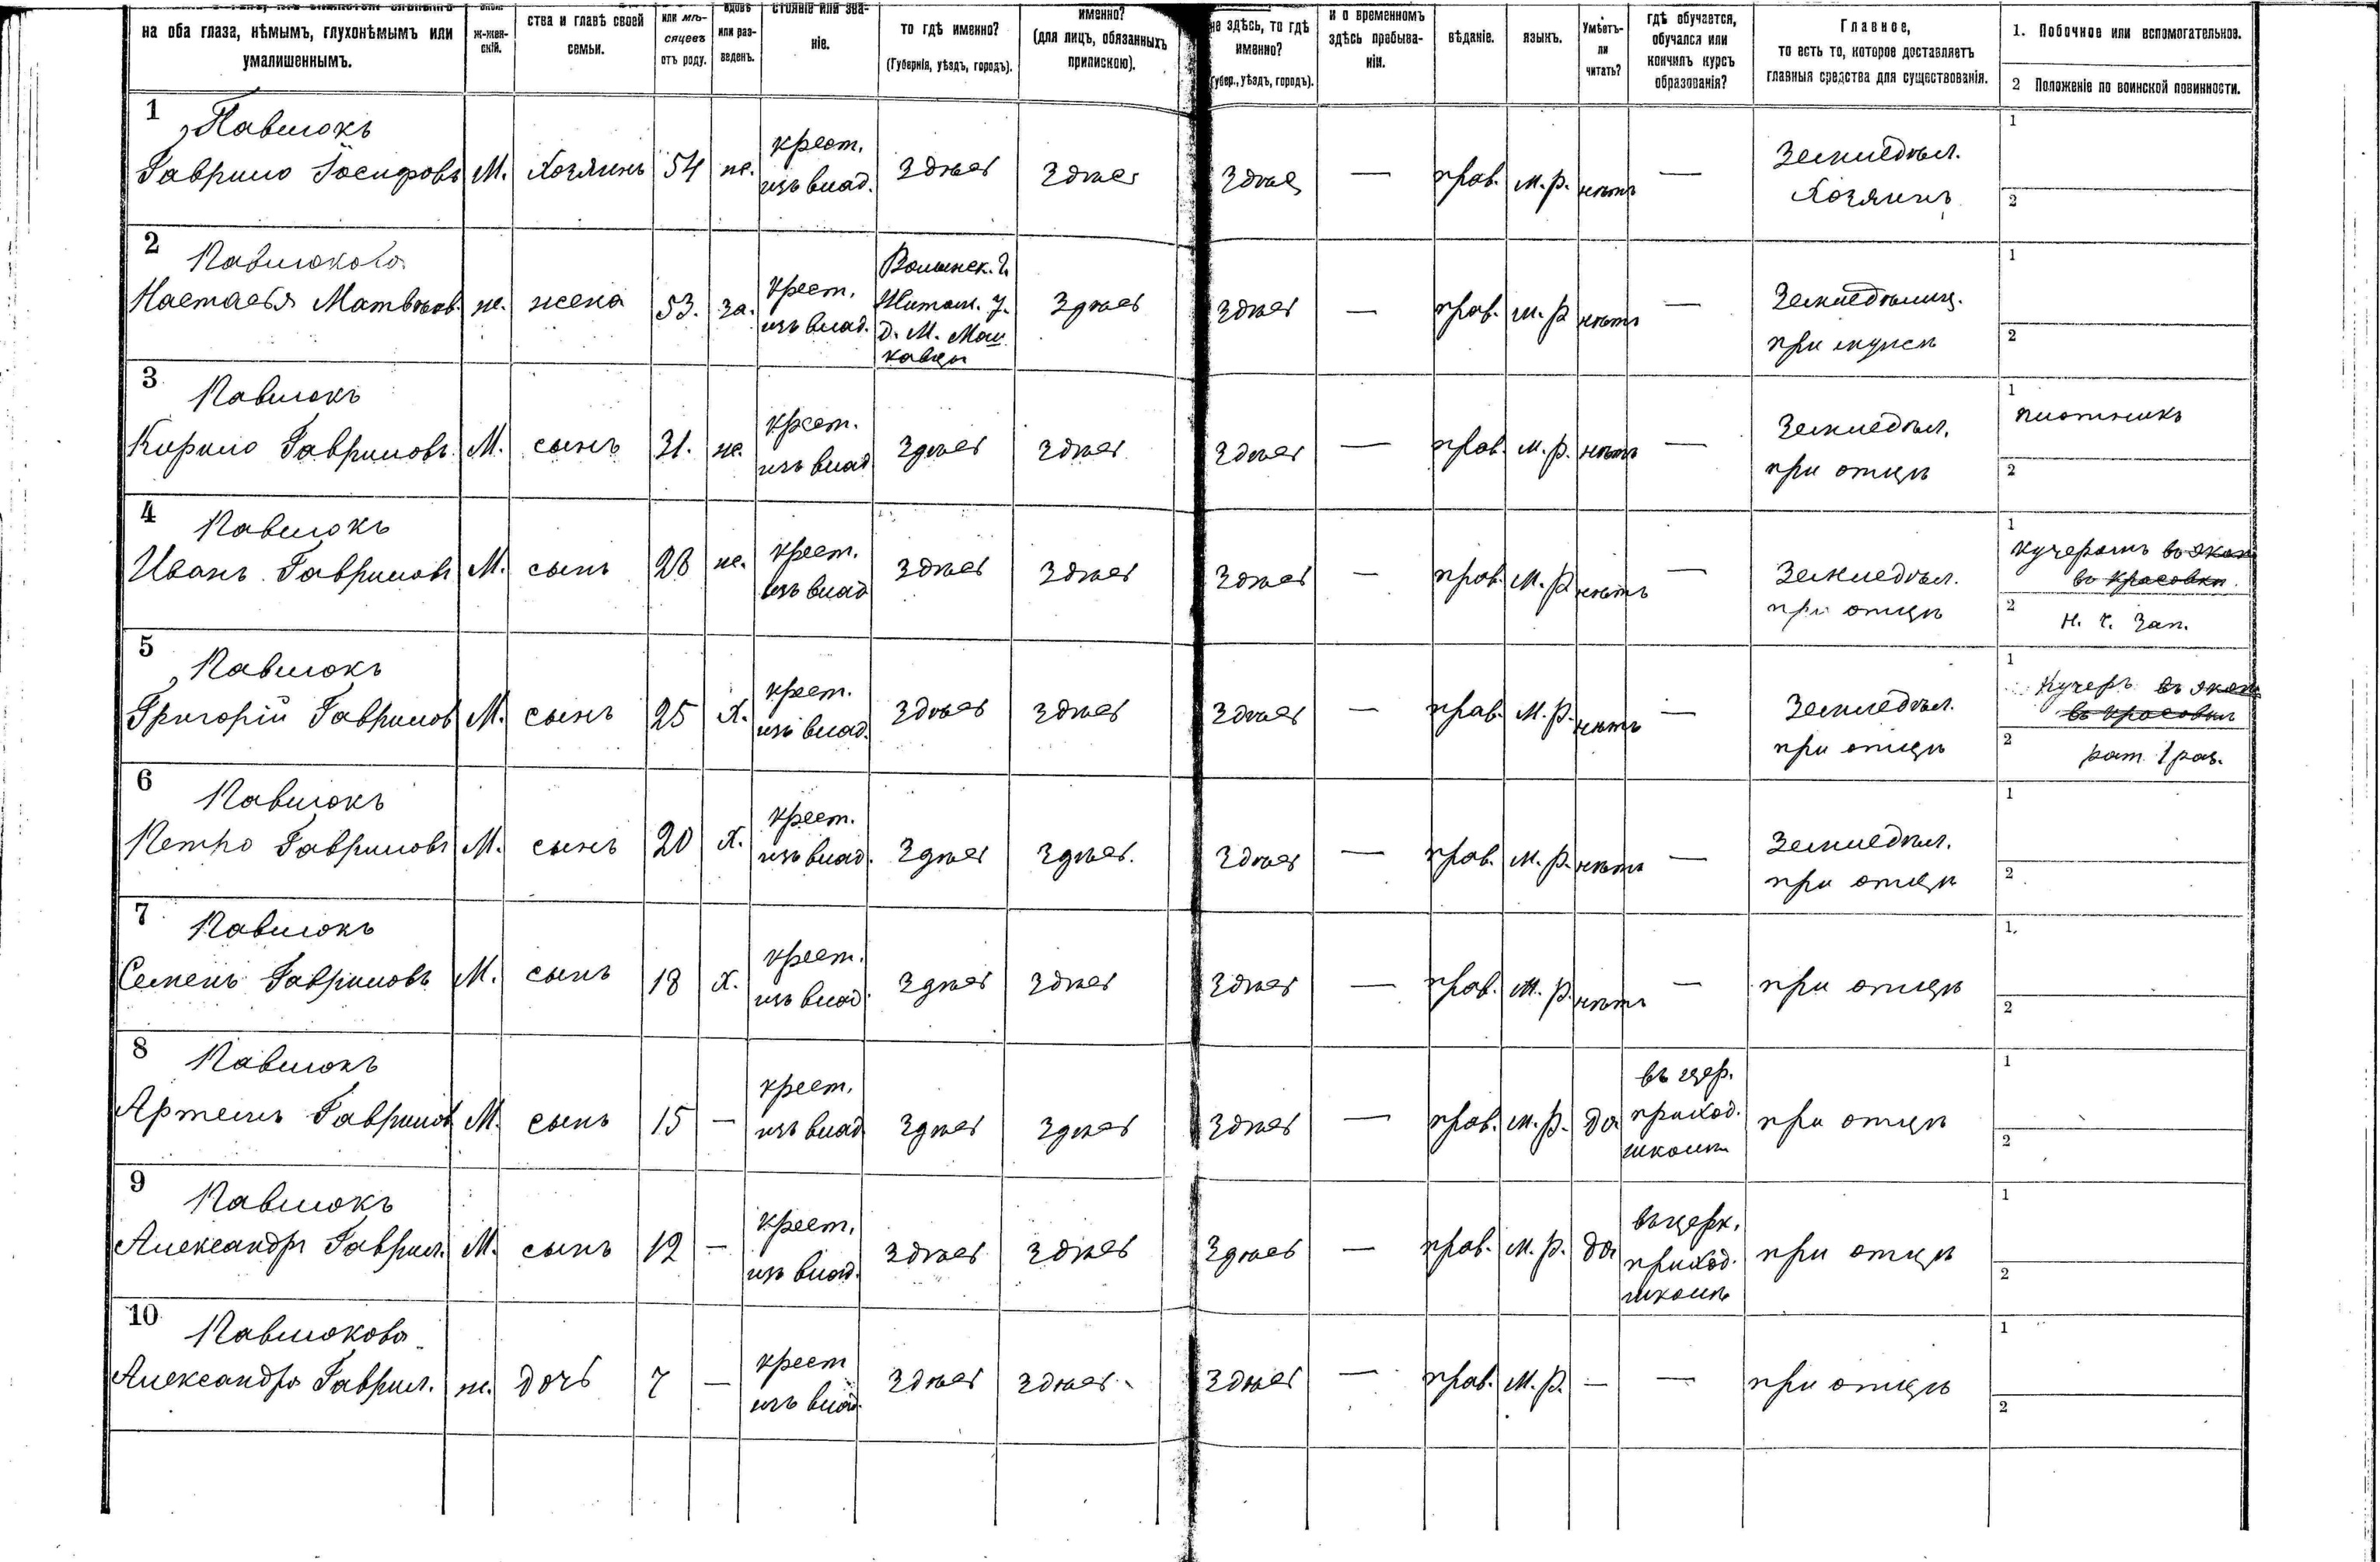 на оба глаза, нѣмымъ, глухонѣмымъ или
умалишеннымъ.
ж-жен-
скій.
ства и главѣ своей
семьи.
или мѣ-
сяцевъ
отъ роду.
вдовъ
или раз-
веденъ.
стояніе или зва-
ніе.
то гдѣ именно?
(Губернія, уѣздъ, городъ).
именно?
(для лицъ, обязанныхъ
припискою).
не здѣсь, то гдѣ
именно?
(Губер., уѣздъ, городъ).
и о временномъ
здѣсь пребыва-
ніи.
вѣданіе.
языкъ.
Умѣетъ-
ли
читать?
гдѣ обучается,
обучался или
кончилъ курсъ
образованія?
Главное,
то есть то, которое доставляетъ
главныя средства для существованія.
1. Побочное или вспомогательное.
2 Положеніе по воинской повинности.
1
Павлюкъ
Гаврило Іосифовъ М. Хозяинъ 54 же. крест. изъ влад. здѣсь здѣсь здѣсь — прав. м. р. нѣтъ — Земледѣл. Хозяинъ
1
2
2
Павлюкова
Настасья Матвѣев. ж. жена 53. за. крест. изъ влад. Волынск. г. Житом. у. д. М. Мош кавцы здѣсь здѣсь — прав. м. р нѣтъ — Земледѣлиц. при мужѣ
1
2
3
Павлюкъ
Кирило Гавриловъ М. сынъ 31. же. крест. изъ влад здѣсь здѣсь здѣсь — прав. м. р. нѣтъ — Земледѣл. при отцѣ
1 плотникъ
2
4
Павлюкъ
Иванъ Гавриловъ М. сынъ 28 же. крест. изъ влад здѣсь здѣсь здѣсь — прав. м. р. нѣтъ — Земледѣл. при отцѣ
1 кучеромъ во экон
во Красовки
2 Н. ч. Зап.
5
Павлюкъ
Григорій Гаврилов М. сынъ 25 Х. крест. изъ влад. здѣсь здѣсь здѣсь — прав. м. р. нѣтъ — Земледѣл. при отцѣ
1 Кучеръ въ экон
въ Красовки
2 рат. 1 раз.
6
Павлюкъ
Петро Гавриловъ М. сынъ 20 Х. крест. изъ влад. здѣсь здѣсь. здѣсь — прав. м. р. нѣтъ — Земледѣл. при отцѣ
1
2
7
Павлюкъ
Семенъ Гавриловъ М. сынъ 18 Х. крест. изъ влад. здѣсь здѣсь здѣсь — прав. м. р. нѣтъ — при отцѣ
1
2
8
Павлюкъ
Артемъ Гаврилов М. сынъ 15 — крест. изъ влад здѣсь здѣсь здѣсь — прав. м. р. да въ цер. приход. школѣ при отцѣ
1
2
9
Павлюкъ
Александръ Гаврил. М. сынъ 12 — крест. изъ влад. здѣсь здѣсь здѣсь — прав. м. р. да въ церк. приход. школѣ при отцѣ
1
2
10
Павлюкова
Александра Гаврил. ж. дочь 7 — крест изъ влад. здѣсь здѣсь здѣсь — прав. м. р. — — при отцѣ
1
2